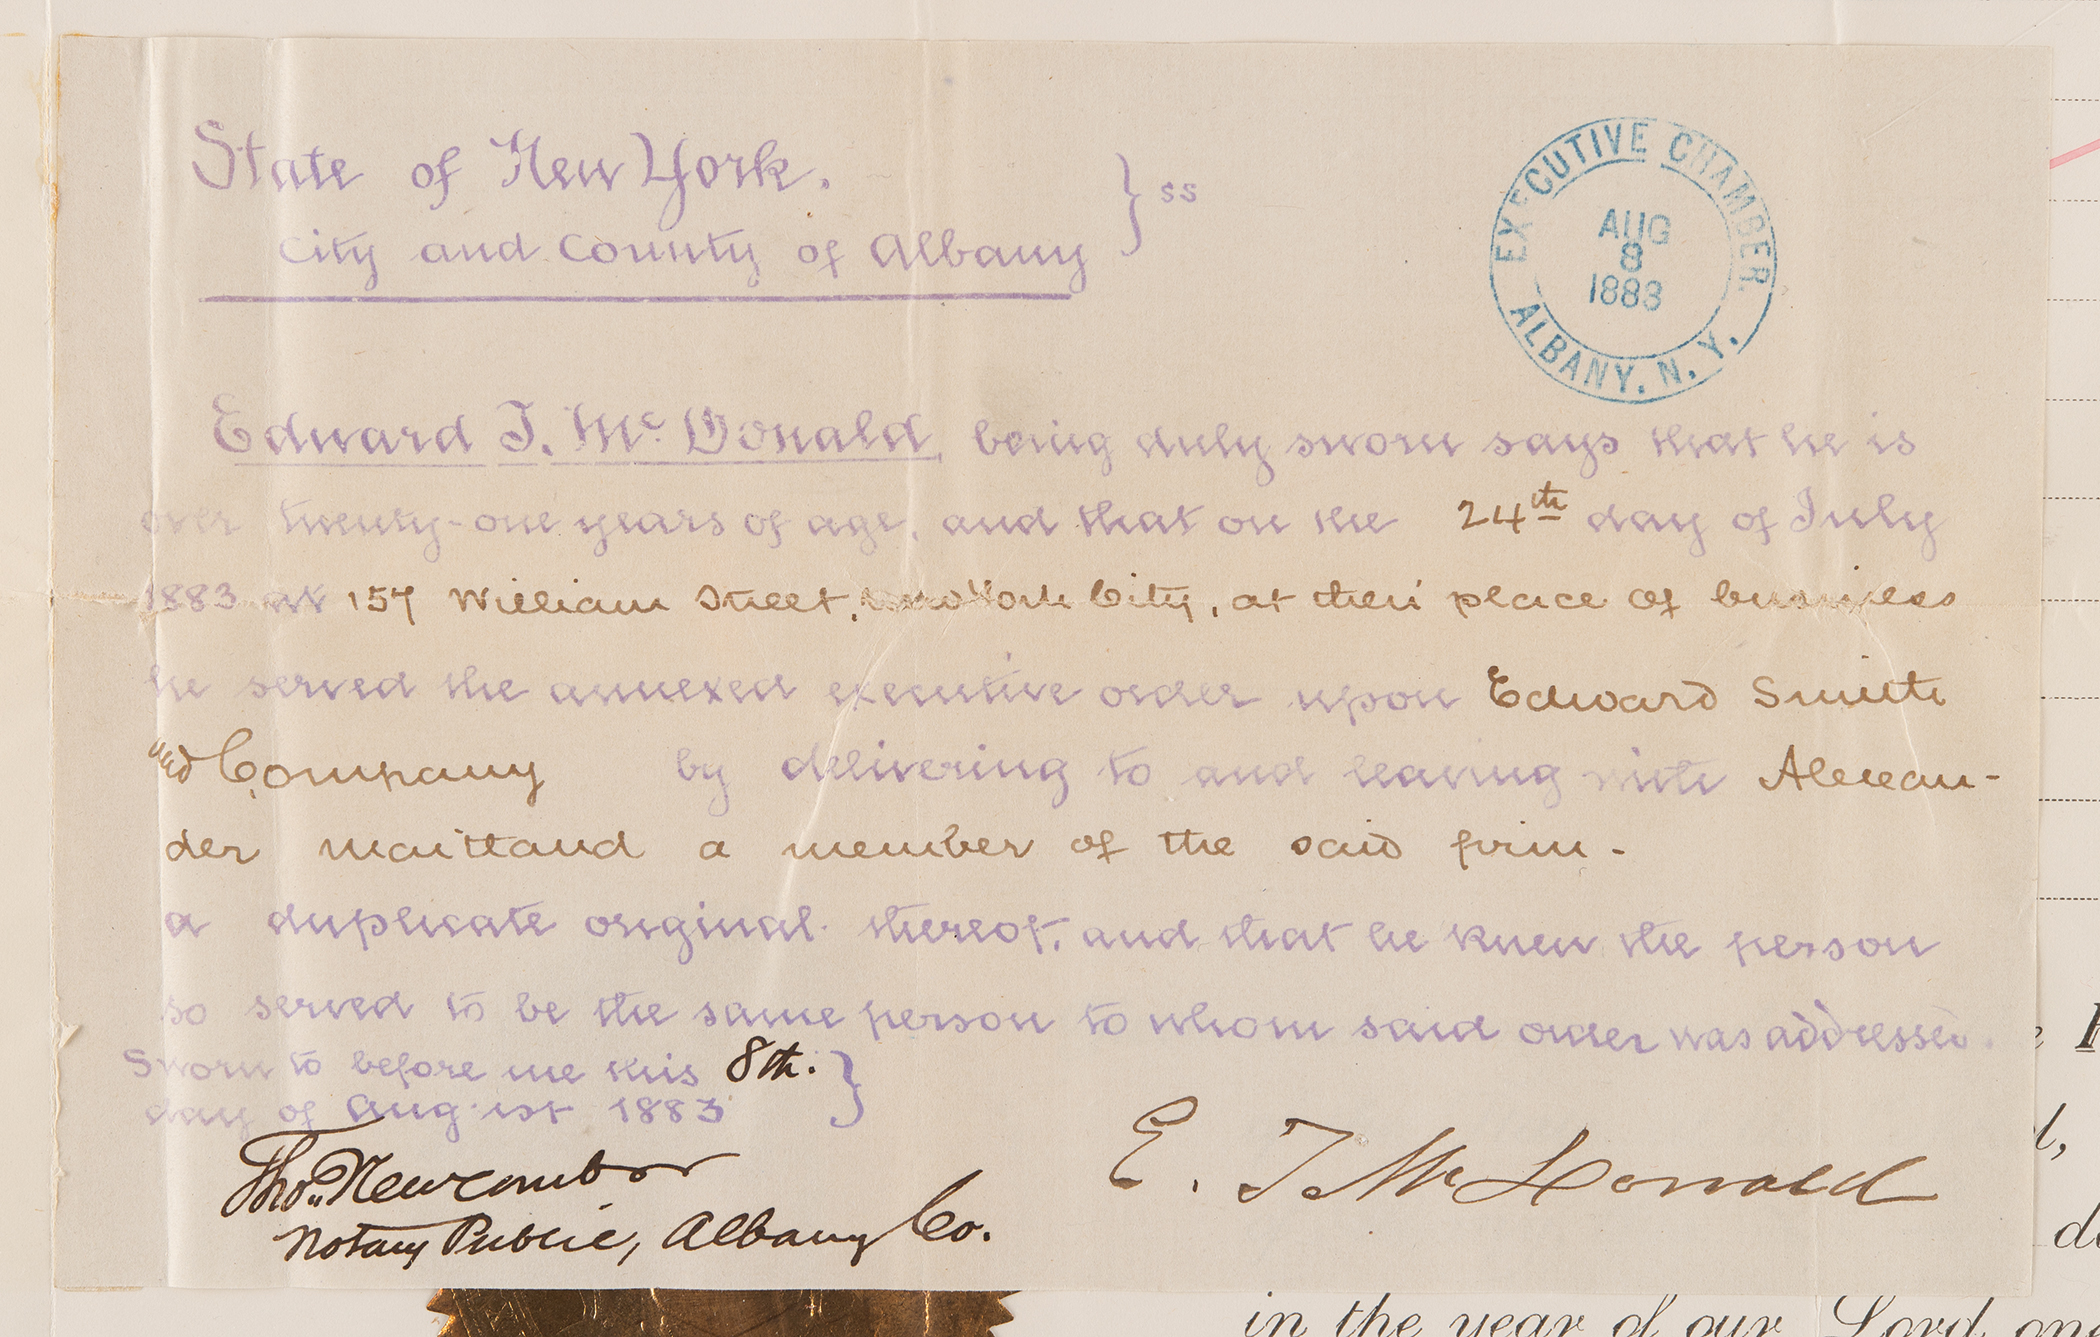 State of New York.
City and County of Albany } ss
EXECUTIVE CHAMBER.
AUG
8
1883
ALBANY, N. Y.
Edward T. Mc Donald, being duly sworn says that he is
over twenty-one years of age, and that on the 24th day of July
1883 at 157 William Street, New York City, at their place of business
he served the annexed executive order upon Edward Smith
and Company by delivering to and leaving with Alexan-
der Maitland a member of the said firm.
a duplicate original thereof, and that he knew the person
so served to be the same person to whom said order was addressed.
Sworn to before me this 8th. }
day of August 1883
Thos. Newcomb
Notary Public, Albany Co.
E. T. McDonald
in the year of our Lord on